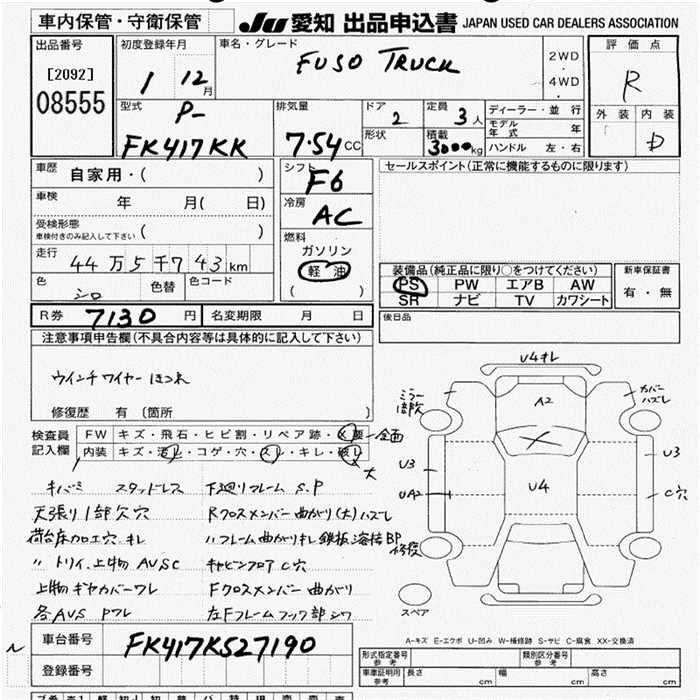 車内保管・守衛保管 JU 愛知 出品申込書 JAPAN USED CAR DEALERS ASSOCIATION
出品番号 初度登録年月 車名・グレード 2WD ・ 4WD 評価点
[2092] 1 12月 FUSO TRUCK R
08555 型式 排気量 ドア 定員 ディーラー・並行 外装 内装
P- 2 3人 モデル年式 年 D
FK417KK 7.54CC 形状 積載 3000kg ハンドル 左・右
車歴 自家用・( ) シフト F6 セールスポイント(正常に機能するものに限ります)
車検 年 月( 日) 冷房 AC
受検形態 車検付きのみ記入して下さい ( ) 燃料
走行 44万5千743km ガソリン
軽油 装備品(純正品に限り○をつけてください) 新車保証書
色 シロ 色替 色コード ( ) PS PW エアB AW 有・無
SR ナビ TV カワシート
R券 7130円 名変期限 月 日 後日品
注意事項申告欄(不具合内容等は具体的に記入して下さい)
ウインチワイヤーほつれ
修復歴 有 〔箇所 〕
検査員記入欄 FW キズ・飛石・ヒビ割・リペア跡・X要 全面
内装 キズ・汚レ・コゲ・穴・スレ・キレ・破レ 大
キバミ スタッドレス 下廻りフレーム S.P
天張り1部欠穴 Rクロスメンバー曲がり(大)ハズレ
荷台床加工穴.キレ 〃フレーム曲がりキレ鉄板溶接BP
〃トリイ.上物 AVSC キャビンフロアC穴
上物ギヤカバーワレ Fクロスメンバー曲がり
各AVS Pワレ 左Fフレームフック部シワ
U4キレ
ミラー
カバーハズレ
A2
U3
U3
UA2
U4
C穴
修復
スペア
A-キズ E-エクボ U-凹み W-補修跡 S-サビ C-腐食 XX-交換済
車台番号 FK417K527190
登録番号
形式指定番号 参考 類別区分番号 参考
車庫証明用 参考 長さ cm 幅 cm 高さ cm